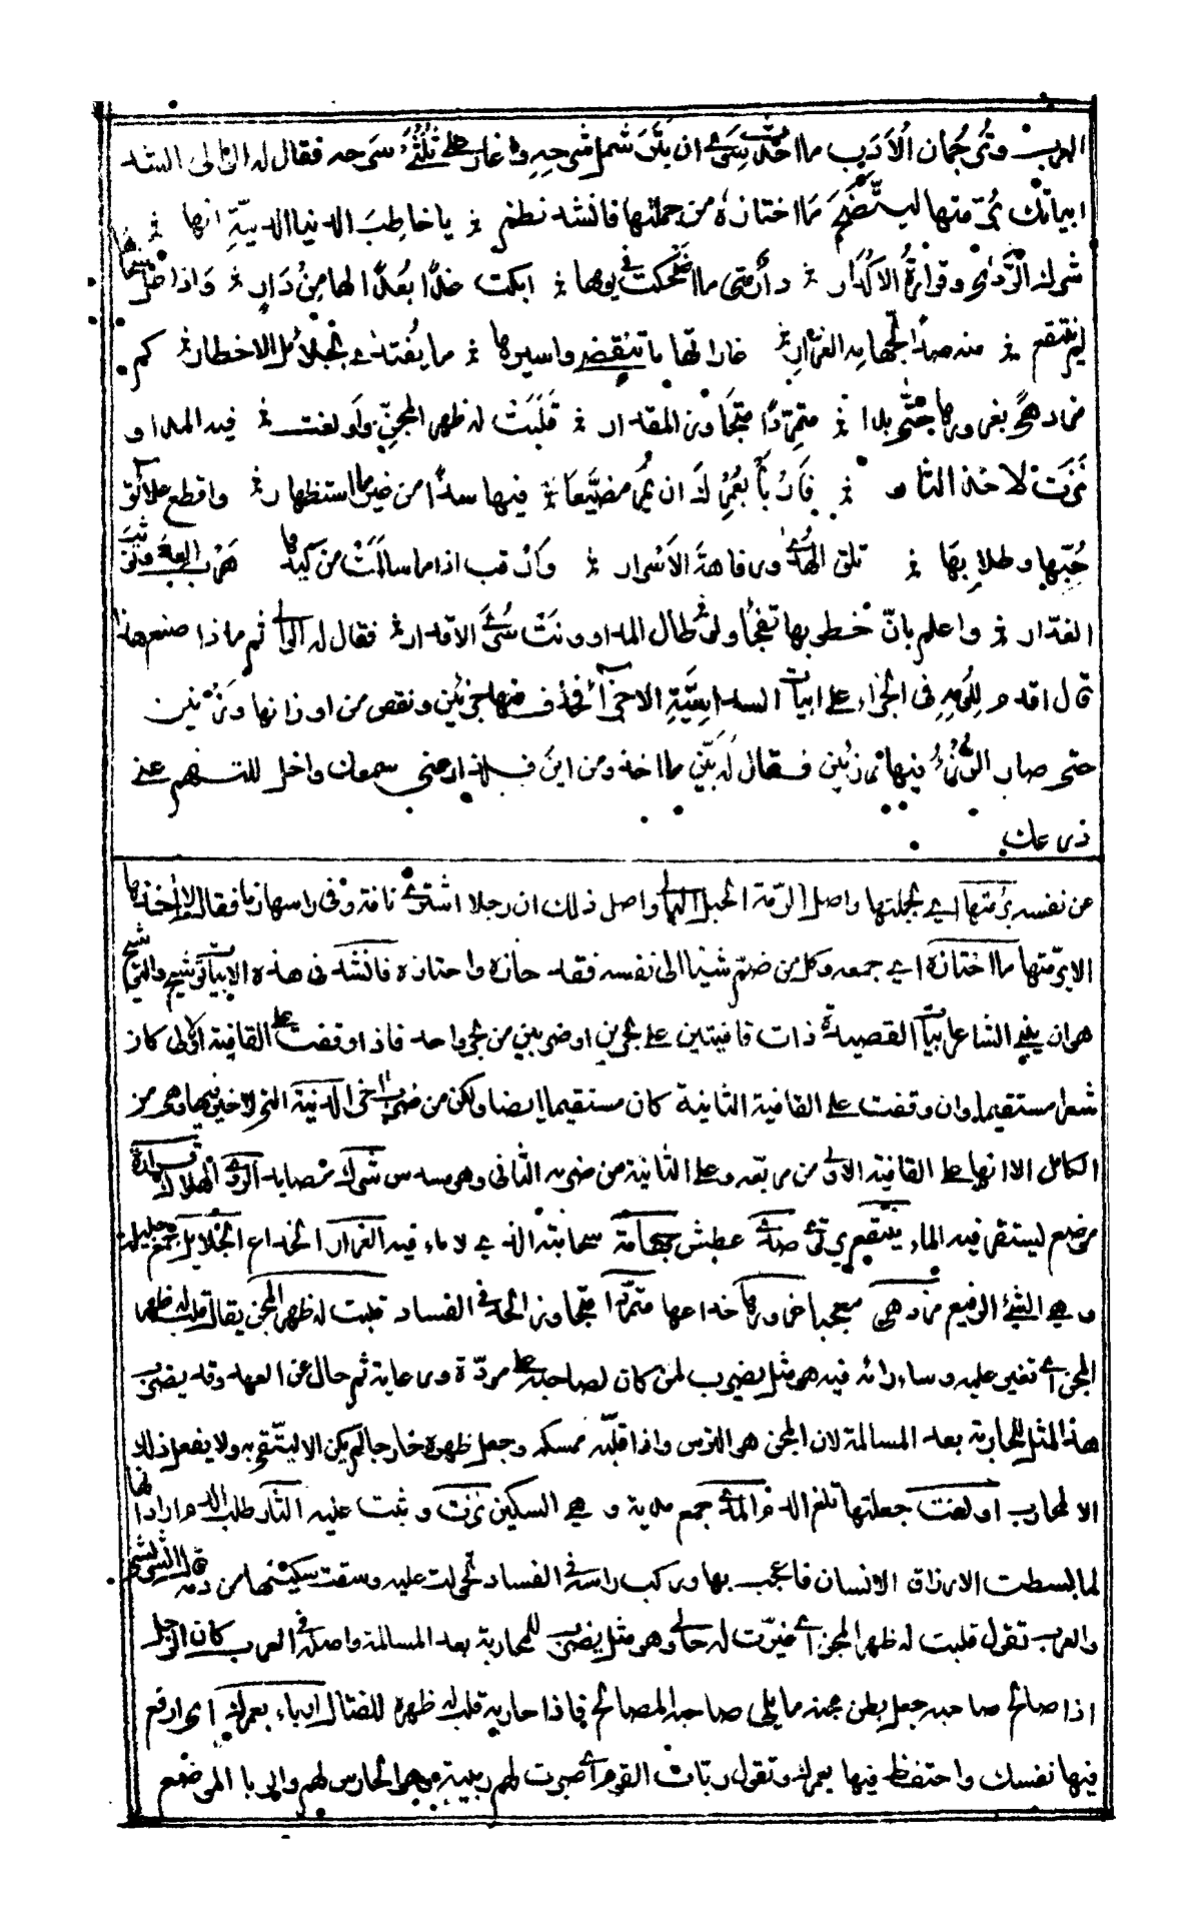 العرب وتُرجُمان الأدَبِ ما احدث سِوَى ان بَتَرَ شَمل شَرحِهِ واغار على ثُلُثَيْ سَرحه فقال له الوالى انشد
ابياتك برُمّتها ليتَّضِحَ مَا احتازه من جملتها فانشد نظم يا خاطِبَ الدنيا الدنيّةِ انها
شرك الرَّدى وقرارةُ الاكدَار دارٌ متى ما اضحكت فى يومها ابكت غدًا بُعدًا لها مِنْ دَارٍ وَاذا اظلّ سحابُها
لم ينتقع منه صدًا لجَهامه الغرّار غاراتها ما تنقضى واسيرها ما يُفتدى بجلائل الاخطار كم
مزدهىً بغرورها حتّى بدا متمرّدًا متجاوز المقدار قَلَبَتْ له ظهر المجنّ واَولغت فيه المدا و
نَزَتْ لاخذ الثار فَارْبَأْ بعُمْرِكَ ان يمرّ مضيَّعَا فيها سدًا من غير ما استظهار واقطع علائق
حُبّها وطلابِهَا تلق الهُدى ورفاهةَ الاَسْرار وَارْقب اذا ما سالَمَتْ من كيدها حَرْب العِدى وتوثّبَ
الغدّار واعلم بانّ خطوبها تفجأ ولو طال المدا وونَتْ سُرَى الاقدار فقال له الوالى ثم ماذا صنع هذا
قال اقدم للُؤمِهِ فى الجزاء على ابيات السداسِيَّةِ الاجزآء فحذف منها جزئين ونقص من اوزانها وزنين
حتى صار الرُّزْءُ فيها رزئين فقال له بَيّن ما اخذ ومن اين فلذ ارعنى سمعك واخل للتفهم عنى
ذرعك
عن نفسه برُمّتها اى بجملتها واصل الرّمة الحبل البالى واصل ذلك ان رجلا اشترى ناقة وفى راسها زمام فقال لا اخذها
الا برمّتها ما احتازه اى جمعه وكل من ضمّ شيئا الى نفسه فقد حازه واحتازه فانشد فى هذه الابيات توشيح والتوشيح
هو ان يبنى الشاعر ابيات القصيدة ذات قافيتين على بحرين او ضربين من بحر واحد فاذا وقفت على القافية الاولى كان
شعرا مستقيما وان وقفت على القافية الثانية كان مستقيما ايضا ولكن من ضرب اخر الدنية التى لا خير فيها وهى من
الكامل الا انها على القافية الاولى من مربعه وعلى الثانية من ضربه الثانى وهو مسدس شرك مصايد الردى الهلاك قرارة
موضع يستقر فيه الماء ينتقع يرتوى صدى عطش جهامة سحابته الذى لا ماء فيه الغرار الخداع الجلايل جمع جليلة
وهى الشئ الرفيع مزدهى معجبا غرورها خداعها متمرّدا متجاوز الحد فى الفساد قلبت له ظهر المجن يقال قلب له ظهر
المجن اى تغير عليه وساء رائه فيه هو مثل يضرب لمن كان لصاحبه على مودّة ورعاية ثم حال عن العهد وقد يضرب
هذا المثل للمحاربة بعد المسالمة لان المجن هو الترس واذا قلّبه ممسكه وجعل ظهره خارجا لم يكن الا ليتّقى به ولا يفعل ذلك
الا المحارب اولغت جعلتها تلغ الدم المدى جمع مدية وهى السكين نزت وثبت عليه الثار طلب الدم ارادا انها
لما بسطت الارزاق الانسان فاعجب بها وركب راسه فى الفساد تحولت عليه وسقت سكينها من دمه قال الشريشى
والعرب تقول قلبت له ظهر المجن اى غيرت له حالى وهو مثل يضرب للمحاربة بعد المسالمة واصله فى العرب كان الرجل
اذا صالح صاحبه جعل بطن مجنه مما يلى صاحبه المصالح فاذا حاربه قلب له ظهره للقتال ارباء بعمرك اى ارفع
فيها نفسك واحتفظ فيها بعمرك وتقول ربات القوم اى صرت لهم ربيئة وهو الحارس لهم والمربا الموضع